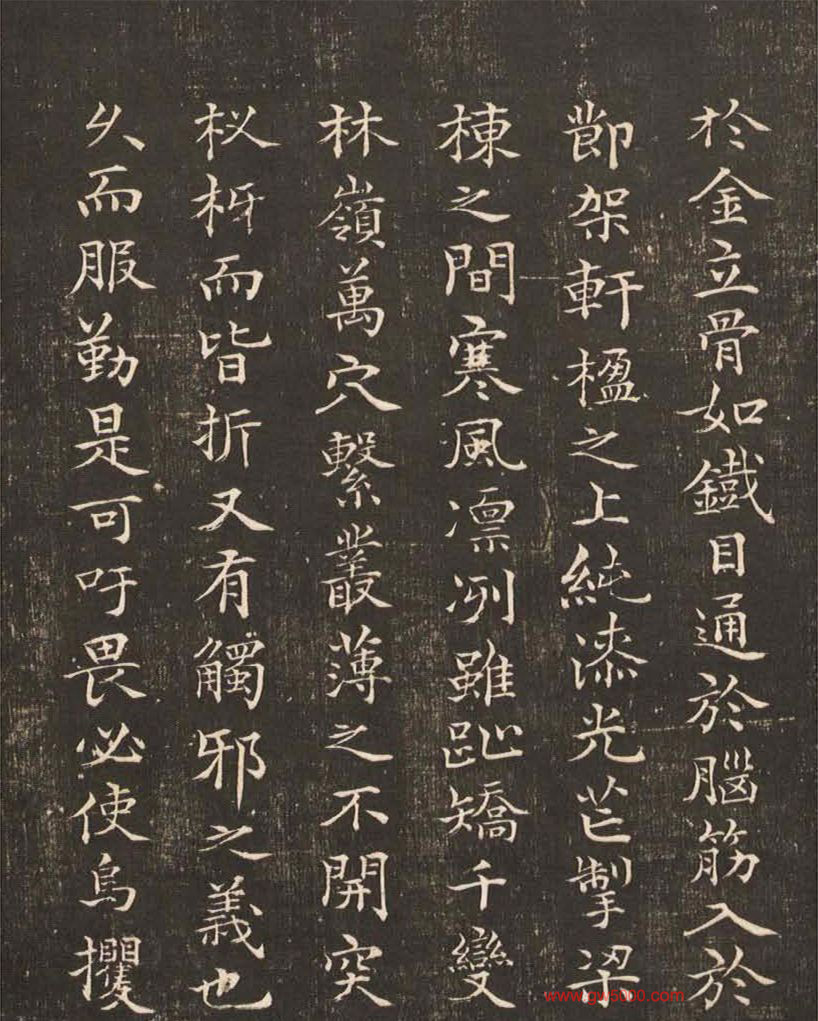 於金立骨如鐵目通於腦筋入於
莭架軒楹之上純漆光芒掣梁
棟之間寒風凛冽雖趾矯千變
林嶺萬穴繫叢薄之不開突
杈枒而皆折又有觸邪之義也
久而服勤是可吁畏必使烏攫
www.gw5000.com